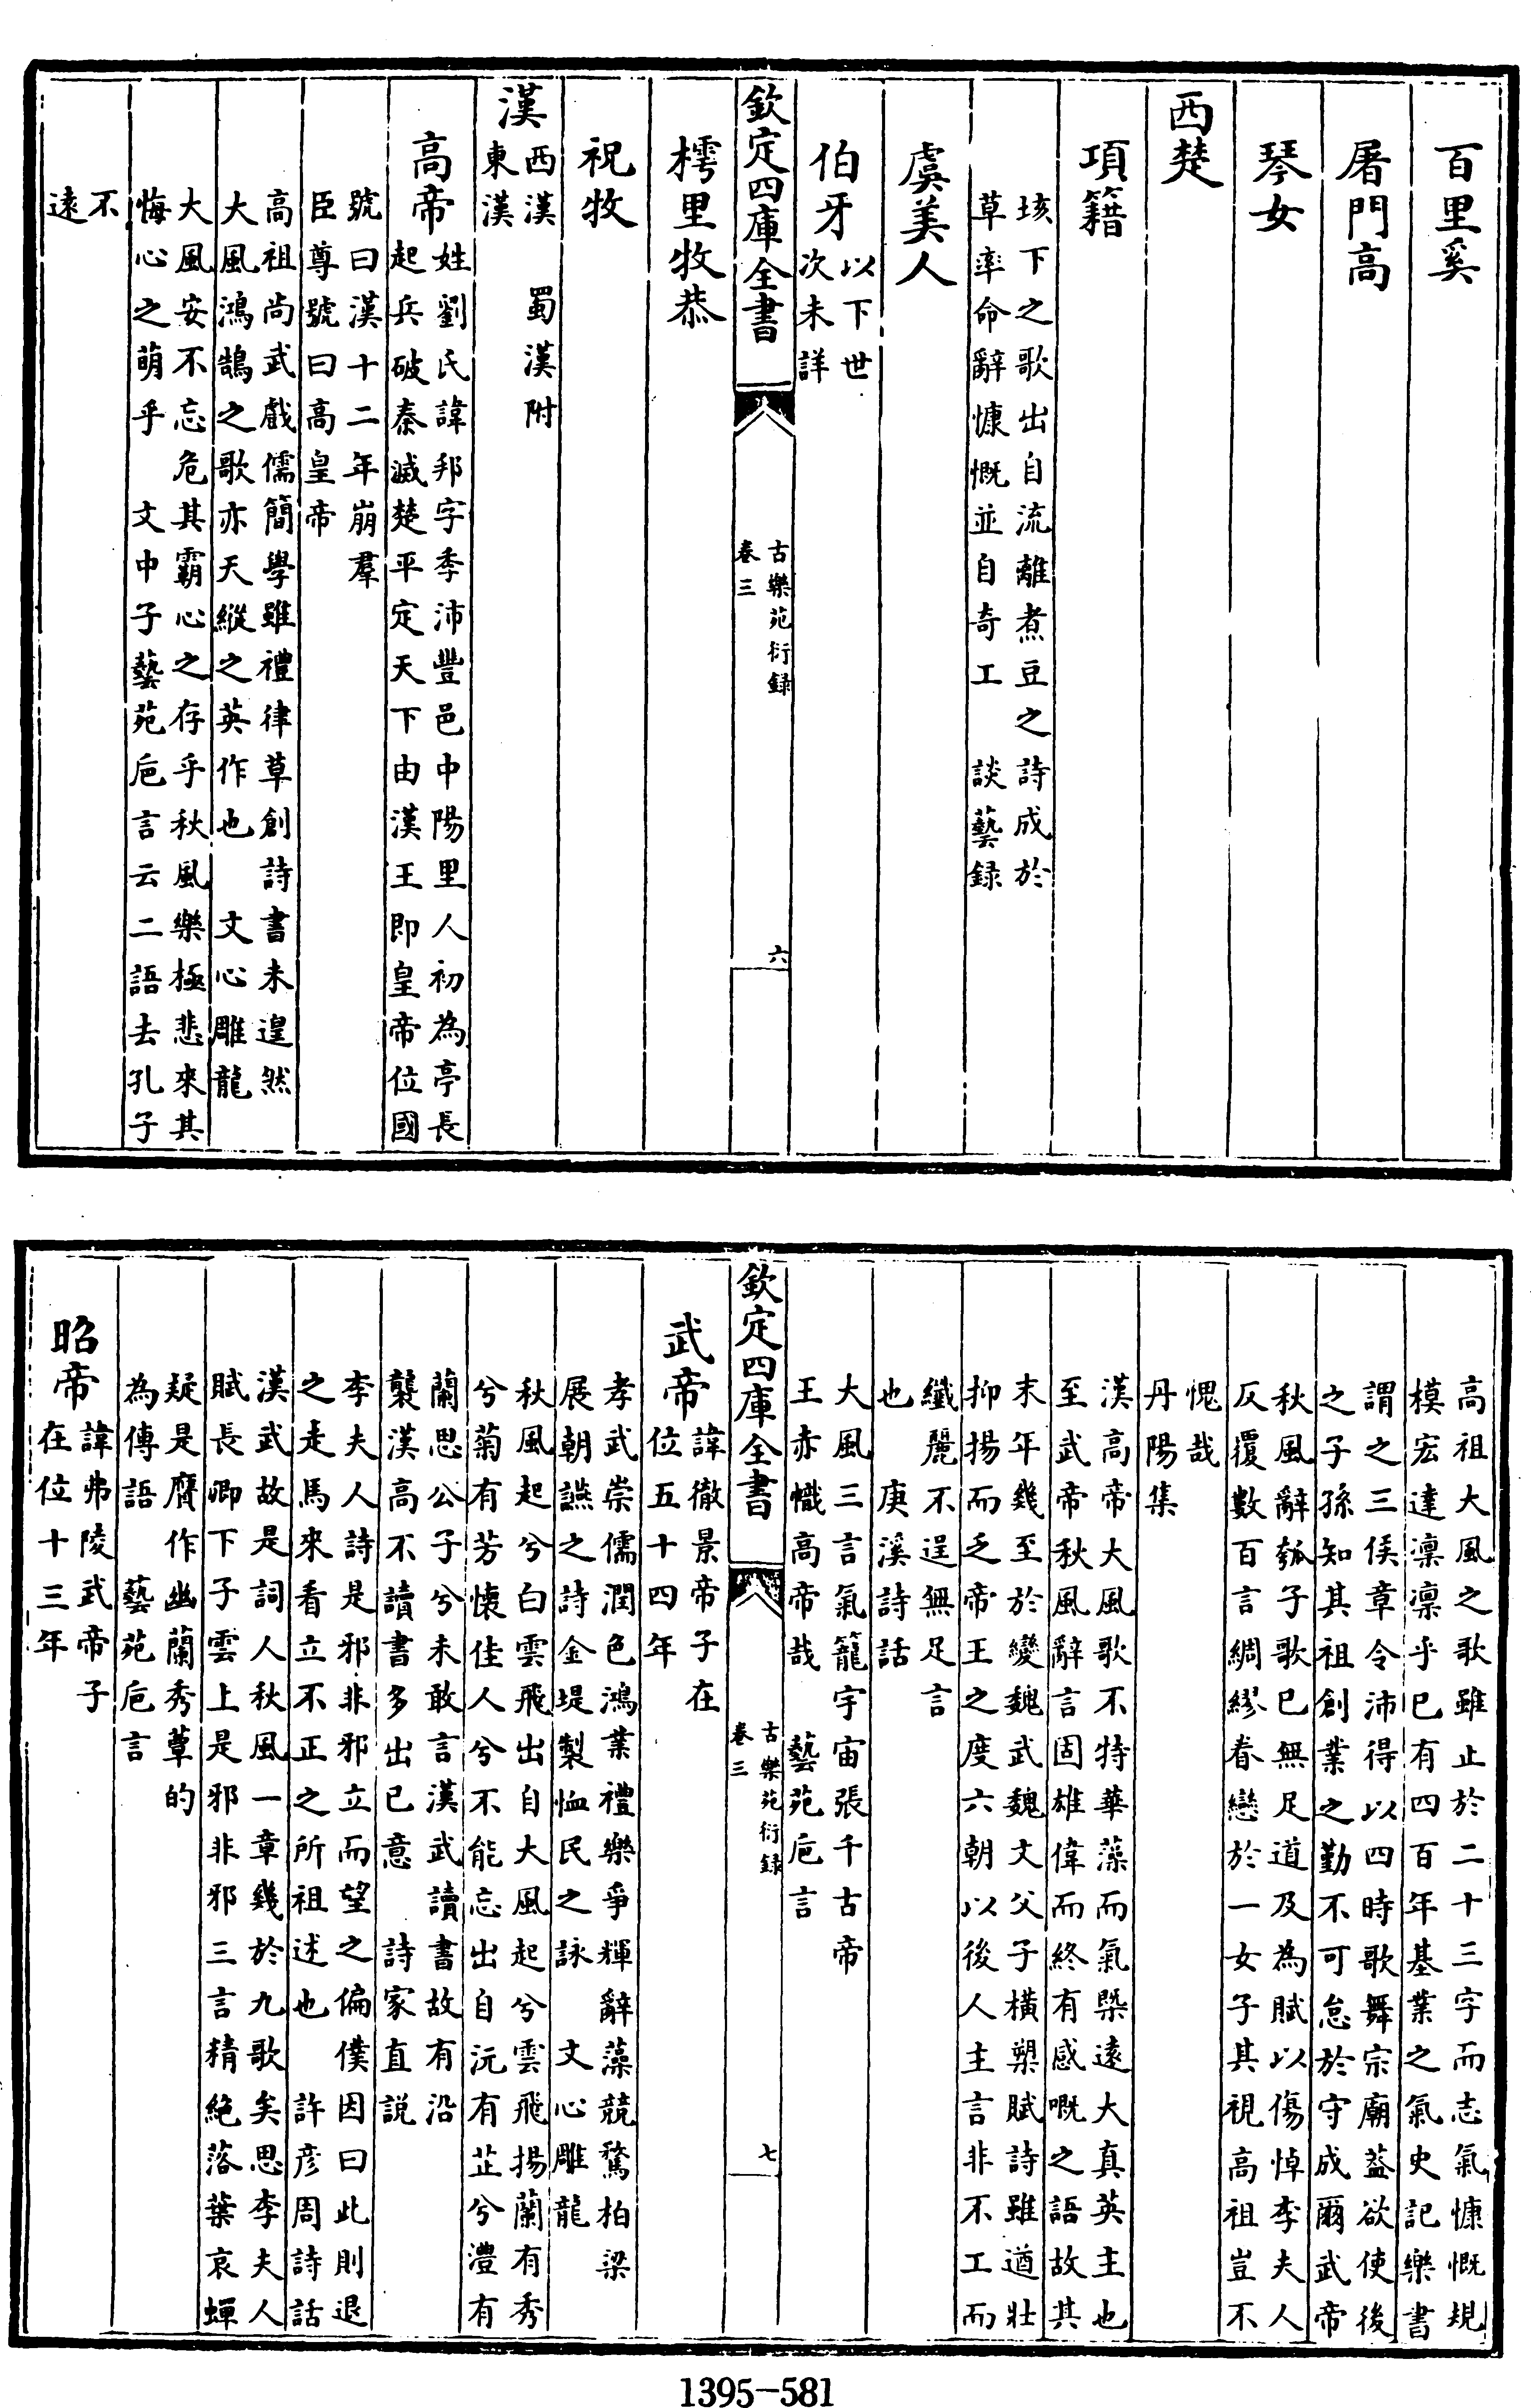 百里奚
屠門高
琴女
西楚
項籍
垓下之歌出自流離煮豆之詩成於
草率命辭慷慨並自奇工　談藝録
虞美人
伯牙以下世
次未詳
欽定四庫全書
古樂苑衍録
卷三
六
樗里牧恭
祝牧
漢西漢　蜀漢附
東漢
高帝姓劉氏諱邦字季沛豐邑中陽里人初為亭長
起兵破秦滅楚平定天下由漢王即皇帝位國
號曰漢十二年崩羣
臣尊號曰高皇帝
高祖尚武戲儒簡學雖禮律草創詩書未遑然
大風鴻鵠之歌亦天縱之英作也　文心雕龍
大風安不忘危其霸心之存乎秋風樂極悲來其
悔心之萌乎　文中子藝苑巵言云二語去孔子
不
遠
高祖大風之歌雖止於二十三字而志氣慷慨規
模宏達凛凛乎已有四百年基業之氣史記樂書
謂之三侯章令沛得以四時歌舞宗廟葢欲使後
之子孫知其祖創業之勤不可怠於守成爾武帝
秋風辭瓠子歌已無足道及為賦以傷悼李夫人
反覆數百言綢繆眷戀於一女子其視高祖豈不
愧哉
丹陽集
漢高帝大風歌不特華藻而氣槩遠大真英主也
至武帝秋風辭言固雄偉而終有感嘅之語故其
末年幾至於變魏武魏文父子橫槊賦詩雖遒壯
抑揚而乏帝王之度六朝以後人主言非不工而
纖麗不逞無足言
也　庚溪詩話
大風三言氣籠宇宙張千古帝
王赤幟高帝哉　藝苑巵言
欽定四庫全書
古樂苑衍録
卷三
七
武帝諱徹景帝子在
位五十四年
孝武崇儒潤色鴻業禮樂爭輝辭藻競騖柏梁
展朝讌之詩金堤製恤民之詠　文心雕龍
秋風起兮白雲飛出自大風起兮雲飛揚蘭有秀
兮菊有芳懷佳人兮不能忘出自沅有芷兮澧有
蘭思公子兮未敢言漢武讀書故有沿
襲漢高不讀書多出已意　詩家直説
李夫人詩是邪非邪立而望之偏僕因曰此則退
之走馬來看立不正之所祖述也　許彦周詩話
漢武故是詞人秋風一章幾於九歌矣思李夫人
賦長卿下子雲上是邪非邪三言精絶落葉哀蟬
疑是贋作幽蘭秀蕈的
為傳語　藝苑巵言
昭帝諱弗陵武帝子
在位十三年
1395-581